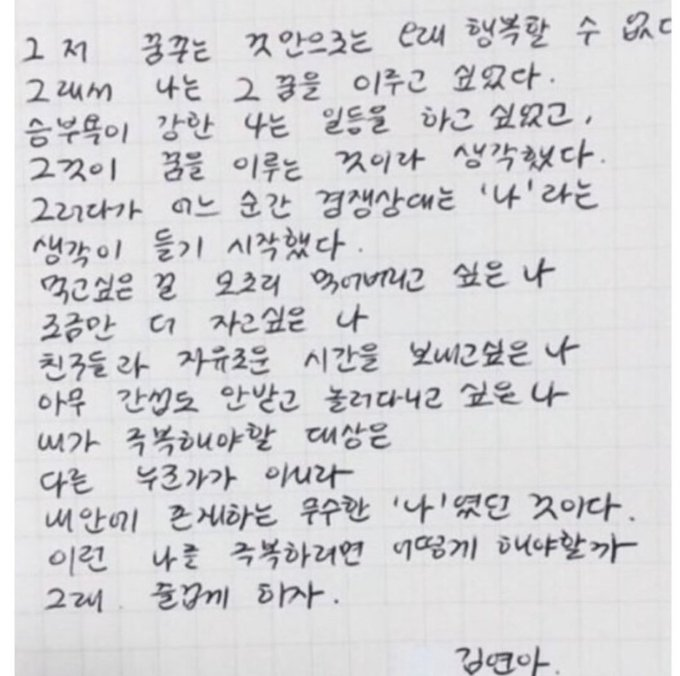 그저 꿈꾸는 것 만으로는 오래 행복할 수 없다
그래서 나는 그 꿈을 이루고 싶었다.
승부욕이 강한 나는 일등을 하고 싶었고,
그것이 꿈을 이루는 것이라 생각했다.
그러다가 어느 순간 경쟁상대는 '나'라는
생각이 들기 시작했다.
먹고싶은 걸 모조리 먹어버리고 싶은 나
조금만 더 자고싶은 나
친구들과 자유로운 시간을 보내고싶은 나
아무 간섭도 안받고 놀러다니고 싶은 나
내가 극복해야할 대상은
다른 누군가가 아니라
내안에 존재하는 무수한 '나'였던 것이다.
이런 나를 극복하려면 어떻게 해야할까
그래. 즐겁게 하자.
김연아.